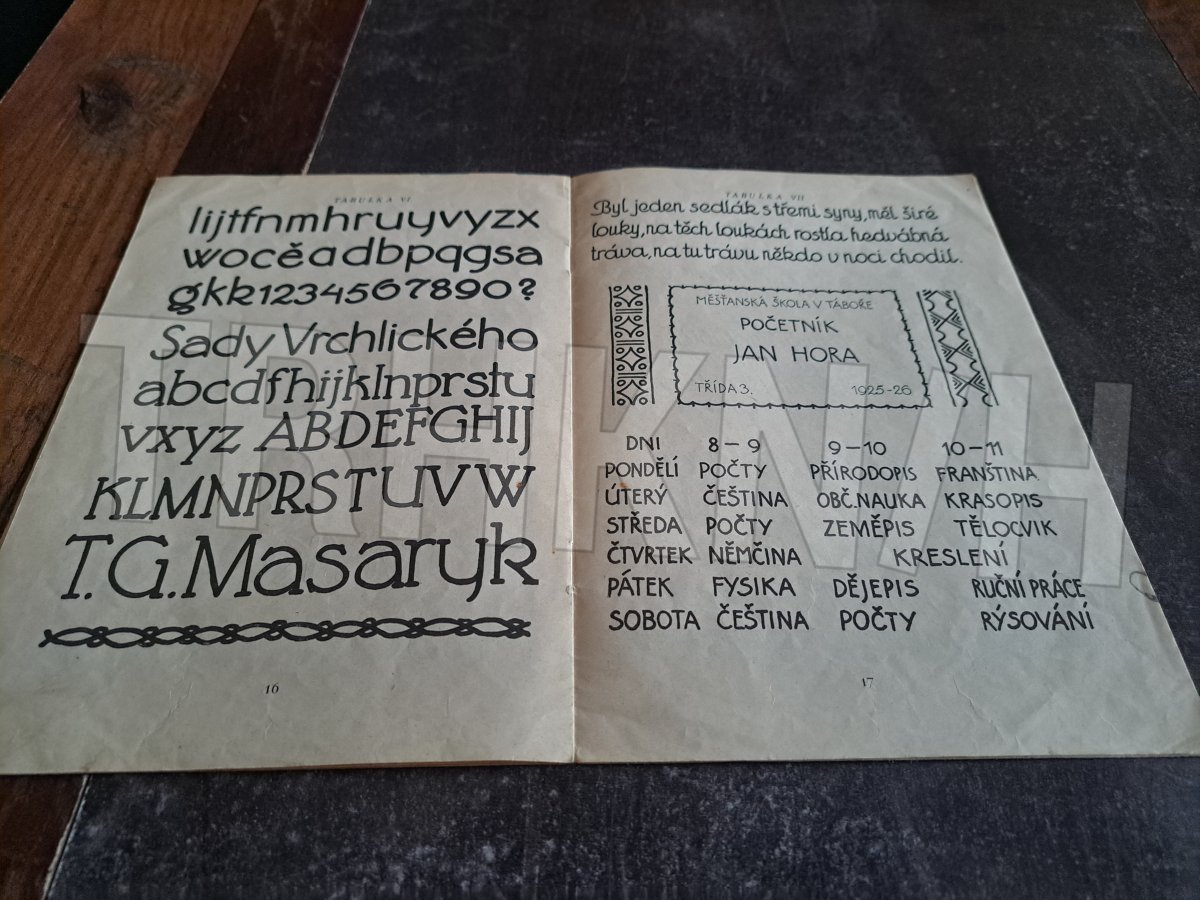 TABULKA VI
lijtfnmhruyvyzx
wocěadbpqgsa
gkk1234567890?
Sady Vrchlického
abcdfhijklnprstu
vxyz ABDEFGHIJ
KLMNPRSTUVW
T.G.Masaryk
16
TABULKA VII
Byl jeden sedlák s třemi syny, měl širé
louky, na těch loukách rostla hedvábná
tráva, na tu trávu někdo v noci chodil.
MĚŠŤANSKÁ ŠKOLA V TÁBOŘE
POČETNÍK
JAN HORA
TŘÍDA 3. 1925-26
DNI 8-9 9-10 10-11
PONDĚLÍ POČTY PŘÍRODOPIS FRANŠTINA
ÚTERÝ ČEŠTINA OBČ. NAUKA KRASOPIS
STŘEDA POČTY ZEMĚPIS TĚLOCVIK
ČTVRTEK NĚMČINA KRESLENÍ
PÁTEK FYSIKA DĚJEPIS RUČNÍ PRÁCE
SOBOTA ČEŠTINA POČTY RÝSOVÁNÍ
17
TRHKNIH